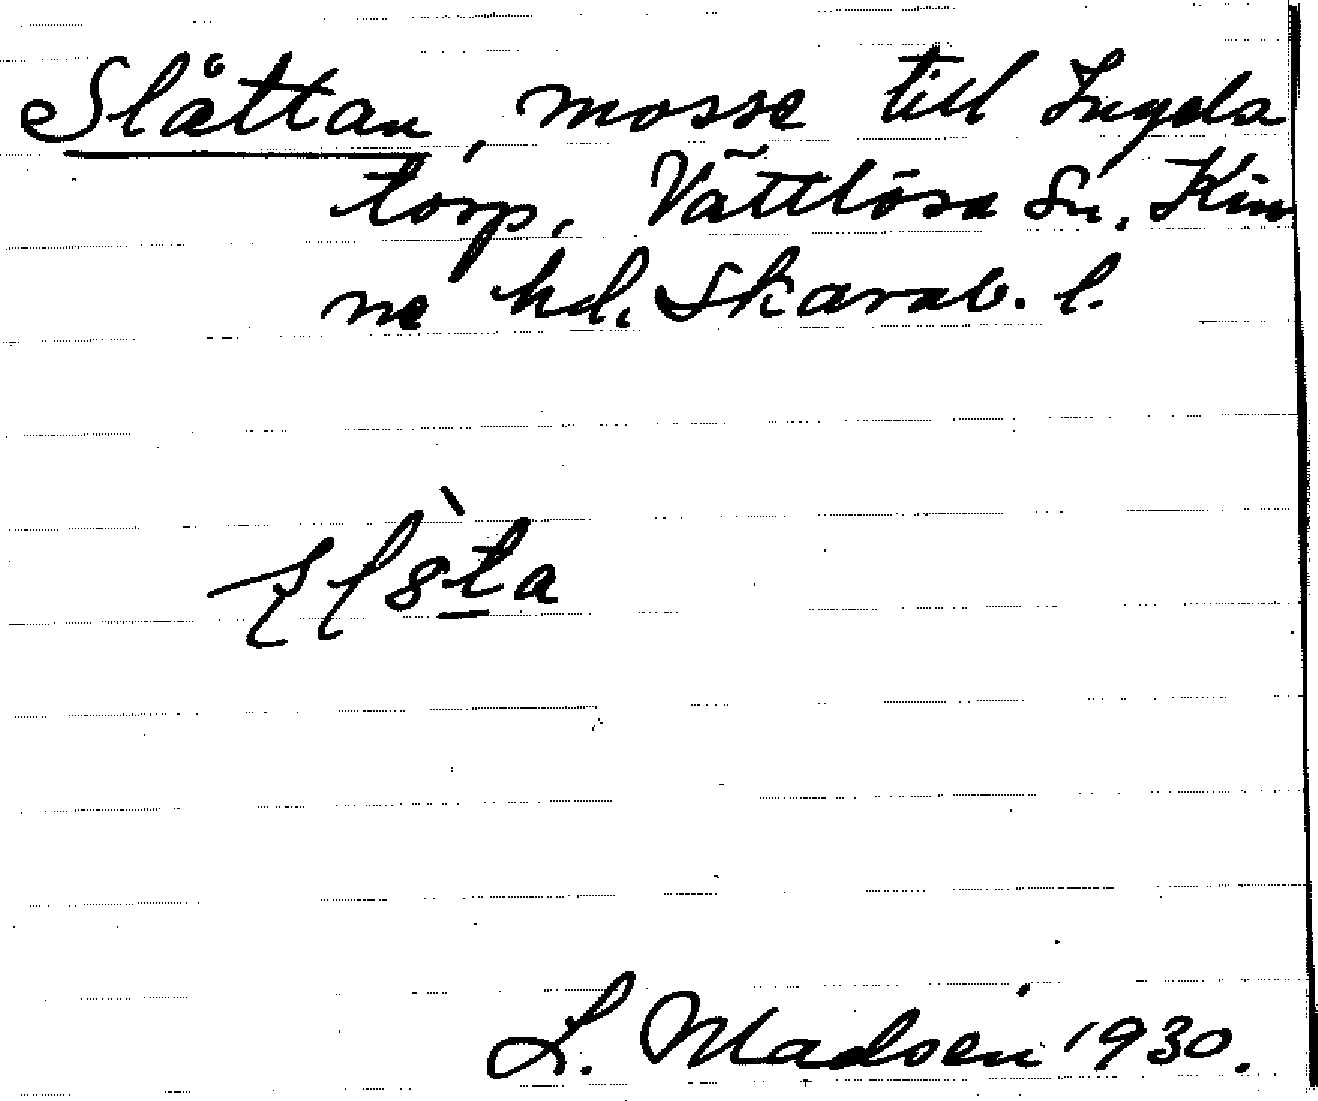 Slåttan, mosse till Ingels
torp, Vättlösa Sn. Kin
ne hd. Skarab. l.
L. Madsén 1930.